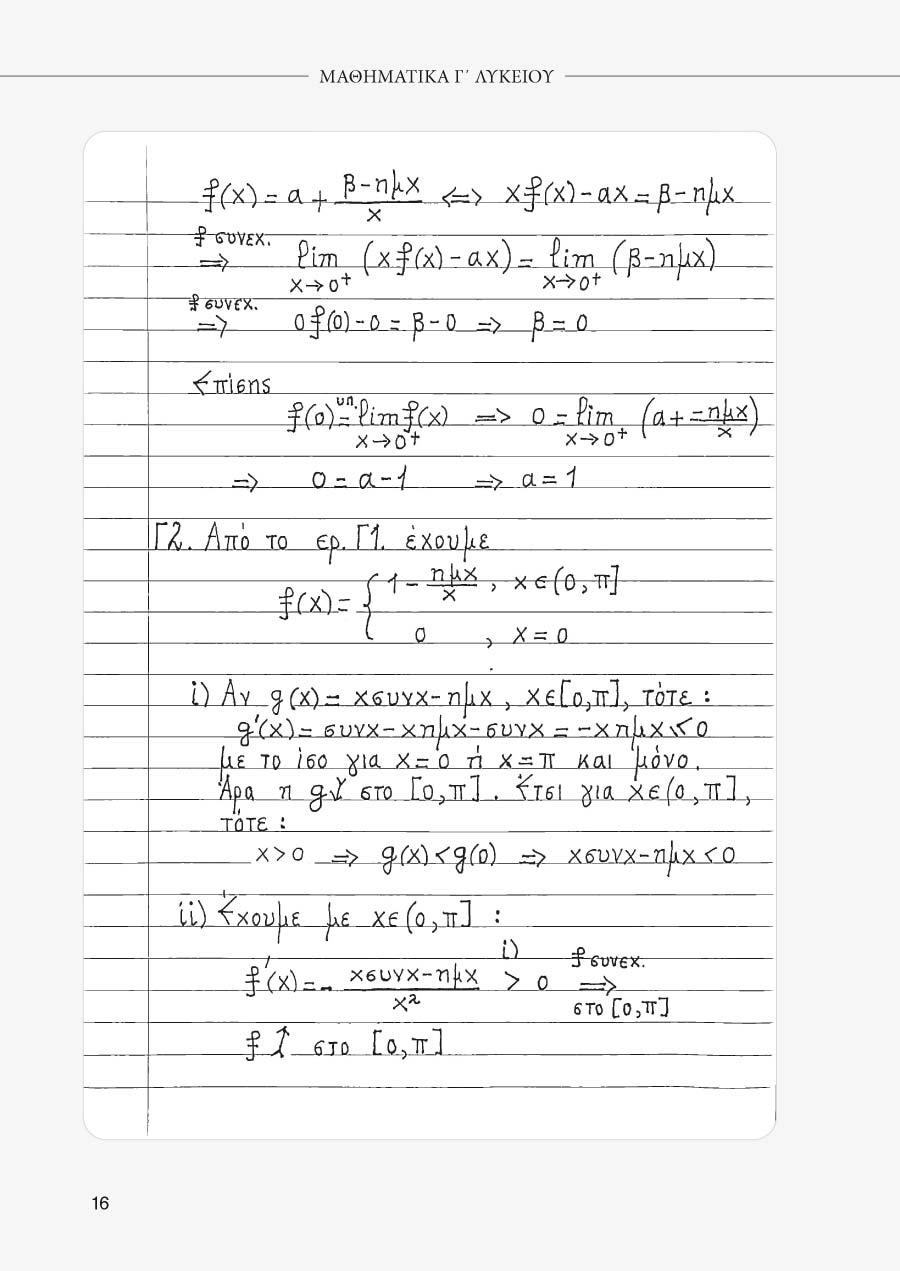 ΜΑΘΗΜΑΤΙΚΑ Γ΄ ΛΥΚΕΙΟΥ
f(x) = α + (β-ημx)/x ⇔ xf(x)-αx = β-ημx
f συνεχ. ⇒ lim x→0⁺ (xf(x)-αx) = lim x→0⁺ (β-ημx)
f συνεχ. ⇒ 0f(0)-0 = β-0 ⇒ β = 0
Επίσης
f(0) υπ. = lim x→0⁺ f(x) ⇒ 0 = lim x→0⁺ (α + -ημx/x)
⇒ 0 = α-1 ⇒ α = 1
Γ2. Από το ερ. Γ1. έχουμε
f(x) = { 1 - ημx/x , x∈(0,π]
0 , x = 0
i) Αν g(x) = xσυνx-ημx , x∈[0,π], τότε :
g'(x) = συνx-xημx-συνx = -xημx ≤ 0
με το ίσο για x = 0 ή x = π και μόνο.
Άρα η g↓ στο [0,π]. Έτσι για x∈(0,π],
τότε :
x > 0 ⇒ g(x) < g(0) ⇒ xσυνx-ημx < 0
ii) Έχουμε με x∈(0,π] :
f'(x) = - (xσυνx-ημx)/x² i) > 0 f συνεχ. ⇒ στο [0,π]
f ↑ στο [0,π]
16